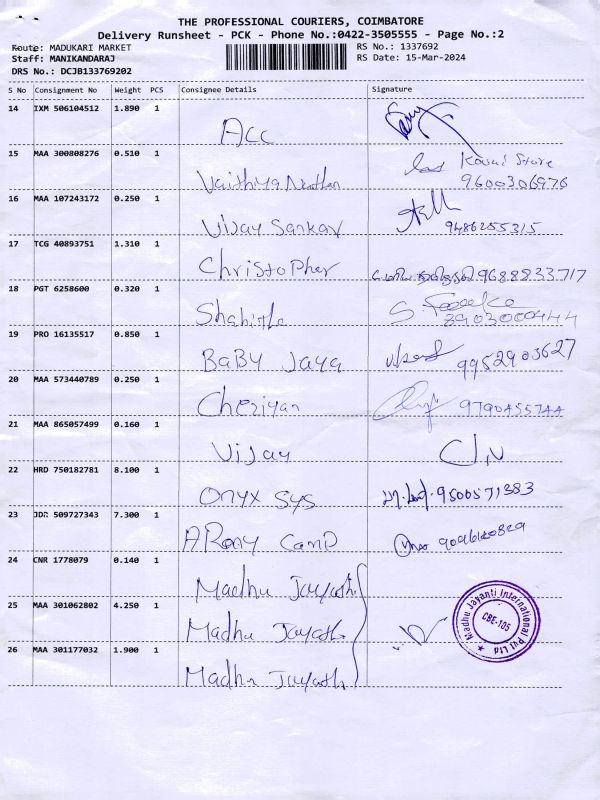 THE PROFESSIONAL COURIERS, COIMBATORE
Delivery Runsheet - PCK - Phone No.:0422-3505555 - Page No.:2
Route: MADUKARI MARKET
RS No.: 1337692
Staff: MANIKANDARAJ
RS Date: 15-Mar-2024
DRS No.: DCJB133769202
S No Consignment No Weight PCS Consignee Details Signature
14 IXM 506104512 1.890 1
Acc
15 MAA 300808276 0.510 1
Vaithya Nathan Kovai Store
9600306976
16 MAA 107243172 0.250 1
Vijay Sankar 9486255315
17 TCG 40893751 1.310 1
Christopher 9688833717
18 PGT 6258600 0.320 1
S
3903000444
19 PRO 16135517 0.850 1
BaBy Jaya 9952903627
20 MAA 573440789 0.250 1
Cheriyan 9790455744
21 MAA 865057499 0.160 1
Vijay
22 HRD 750182781 8.100 1
Onyx Sys 9500571383
23 JDR 509727343 7.300 1
ARony Camp 9096120829
24 CNR 1778079 0.140 1
Madhu Jayathi
25 MAA 301062802 4.250 1
Madhu Jayathi
Madhu Jayanti International Pvt Ltd
CBE-105
26 MAA 301177032 1.900 1
Madhu Jayathi